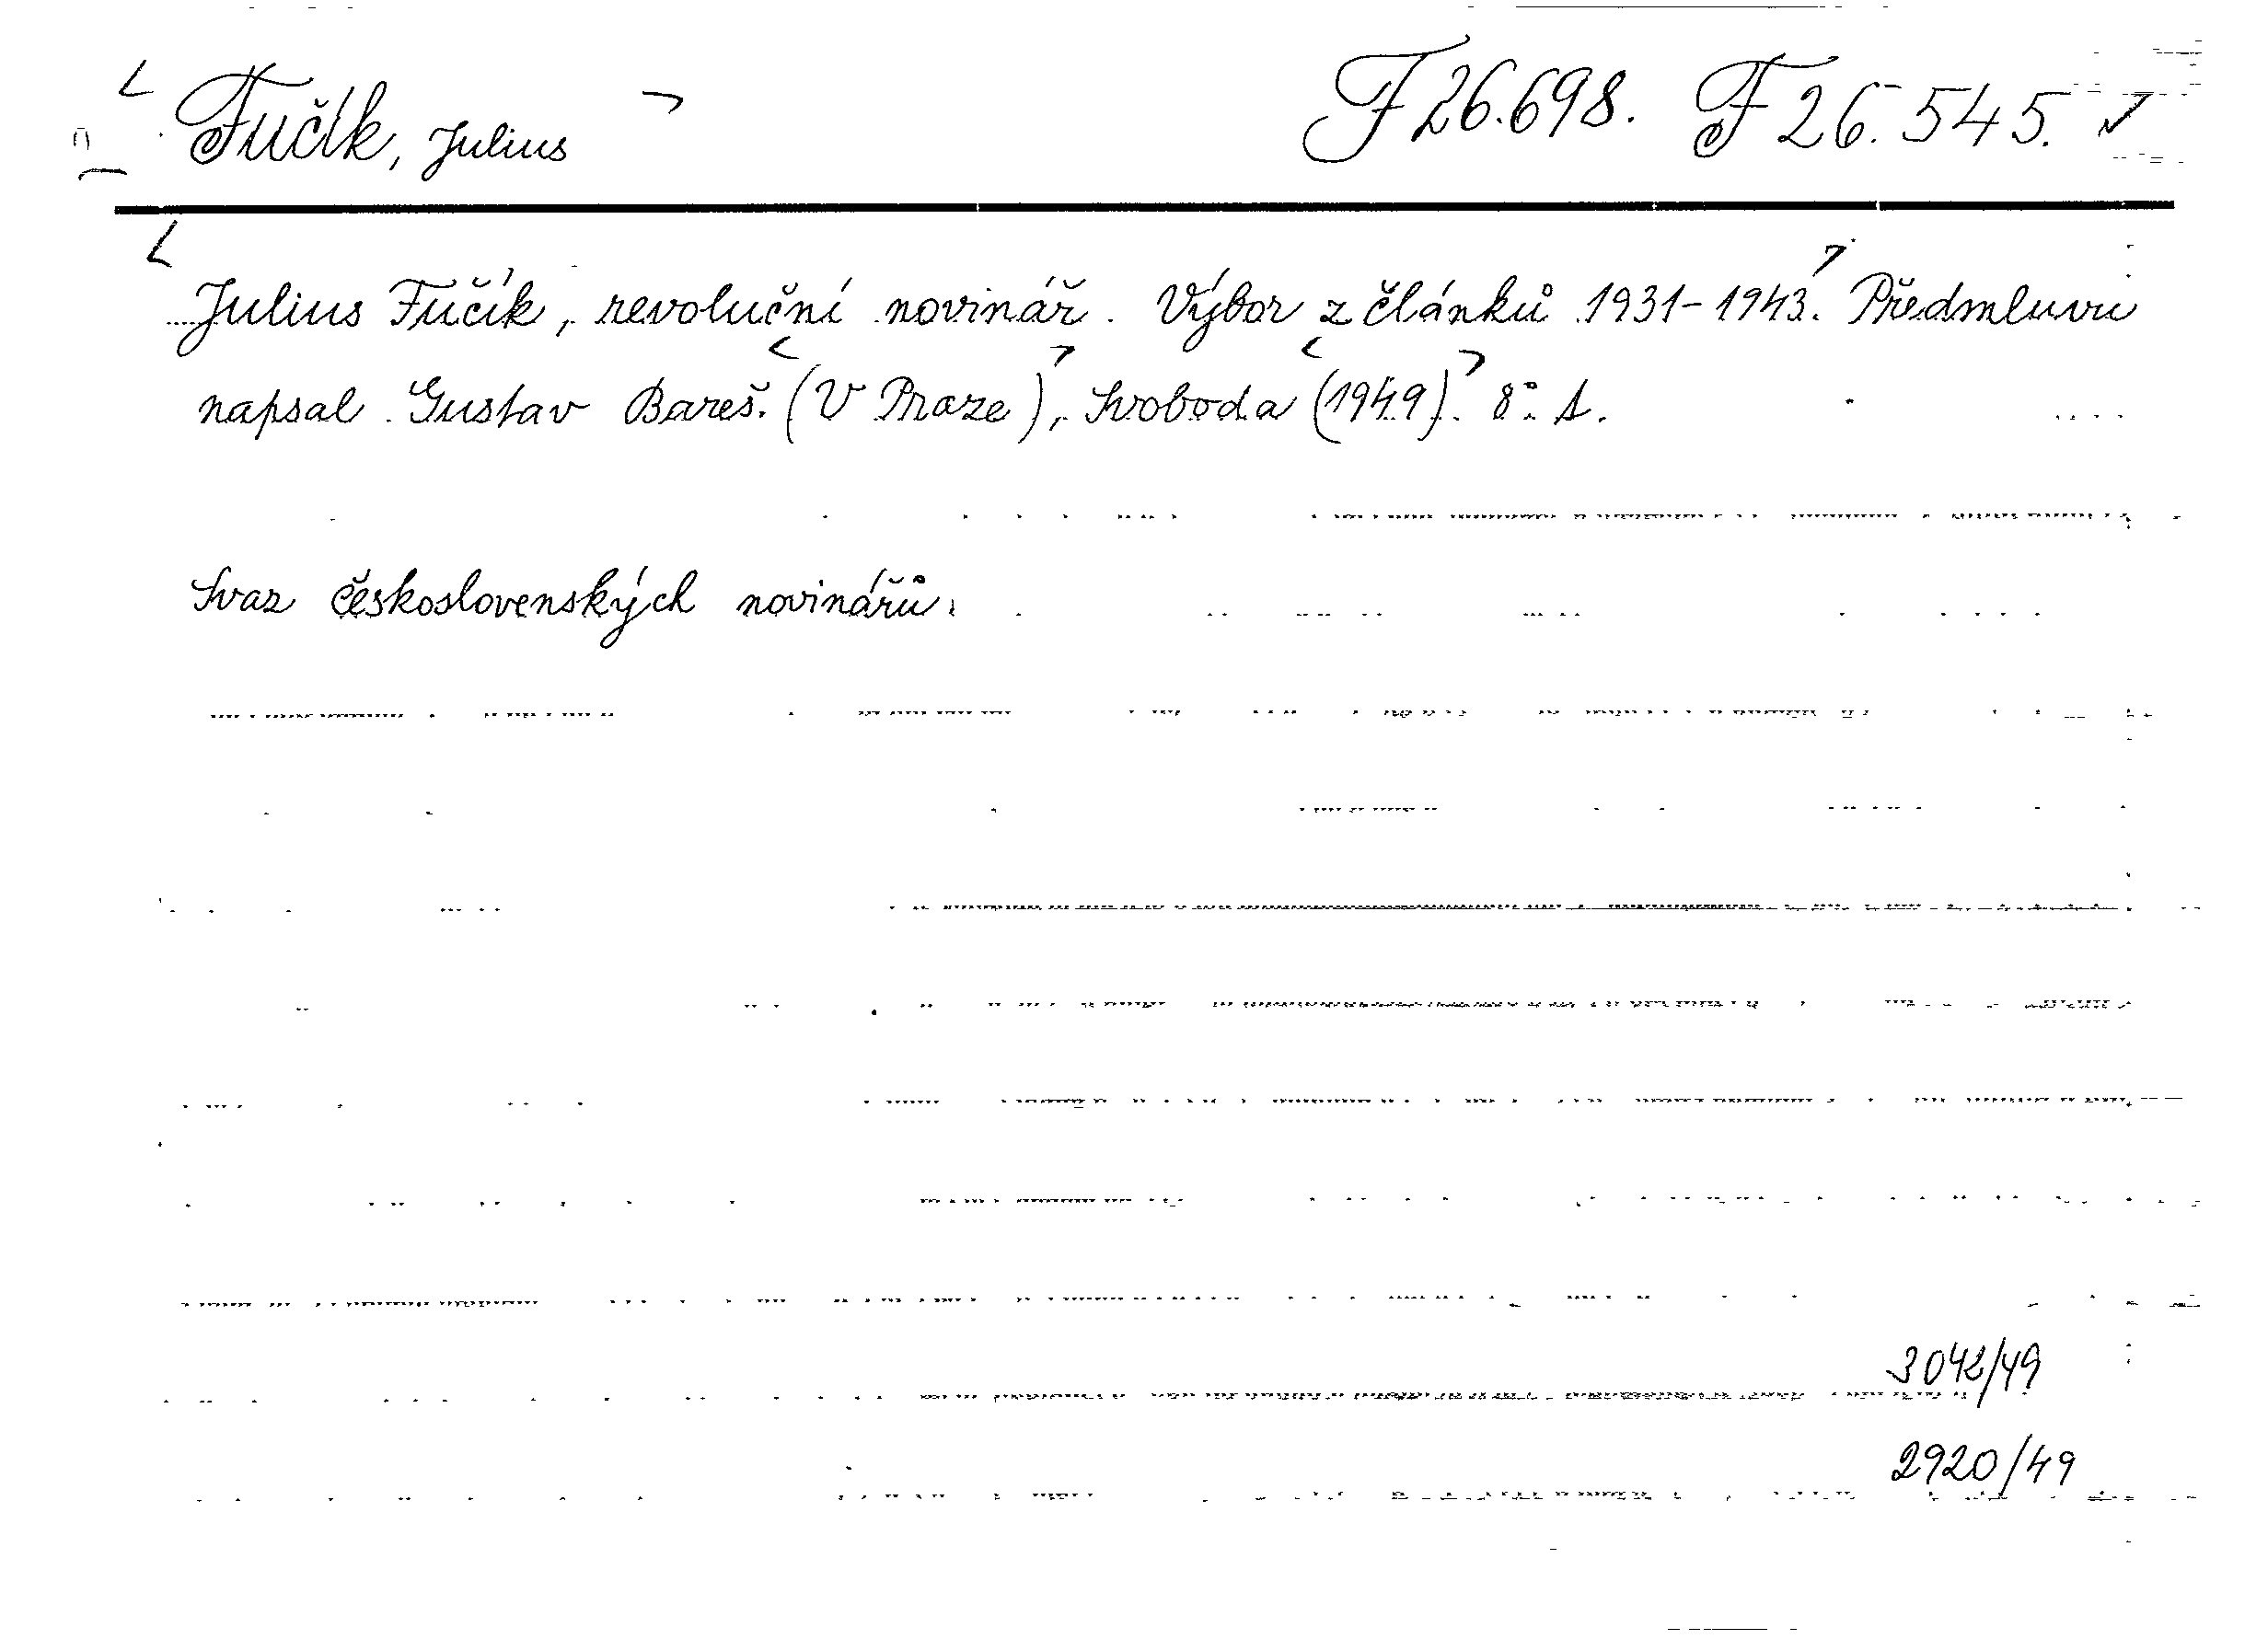 Fučík, Julius F 26.698. F 26.545. ✓
Julius Fučík, revoluční novinář. Výbor z článků 1931-1943. Předmluvu
napsal Gustav Bareš. (V Praze), Svoboda (1949). 8°. 1.
Svaz československých novinářů.
3042/49
2920/49